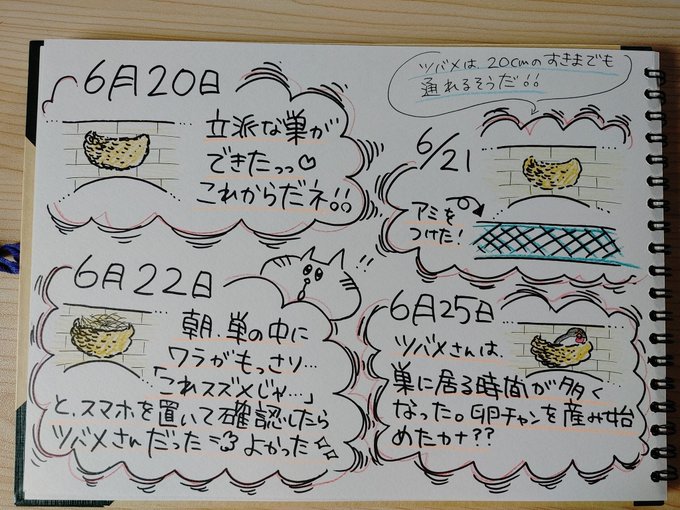 6月20日
立派な巣が
できたっっ♡
これからだネ!!
ツバメは、20cmのすきまでも
通れるそうだ!!
6/21
アミを
つけた!
6月22日
!!
朝、巣の中に
ワラがもっさり…
「これスズメじゃ…」
と、スマホを置いて確認したら
ツバメさんだった=3 よかった✨
6月25日
ツバメさんは、
巣に居る時間が多く
なった。卵チャンを産み始
めたカナ??